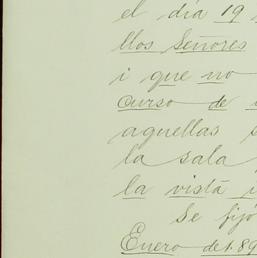 el día 19
llos Señores
i que no
curso de
aquellas
la sala
la vista
Se fijó
Enero de 1.89